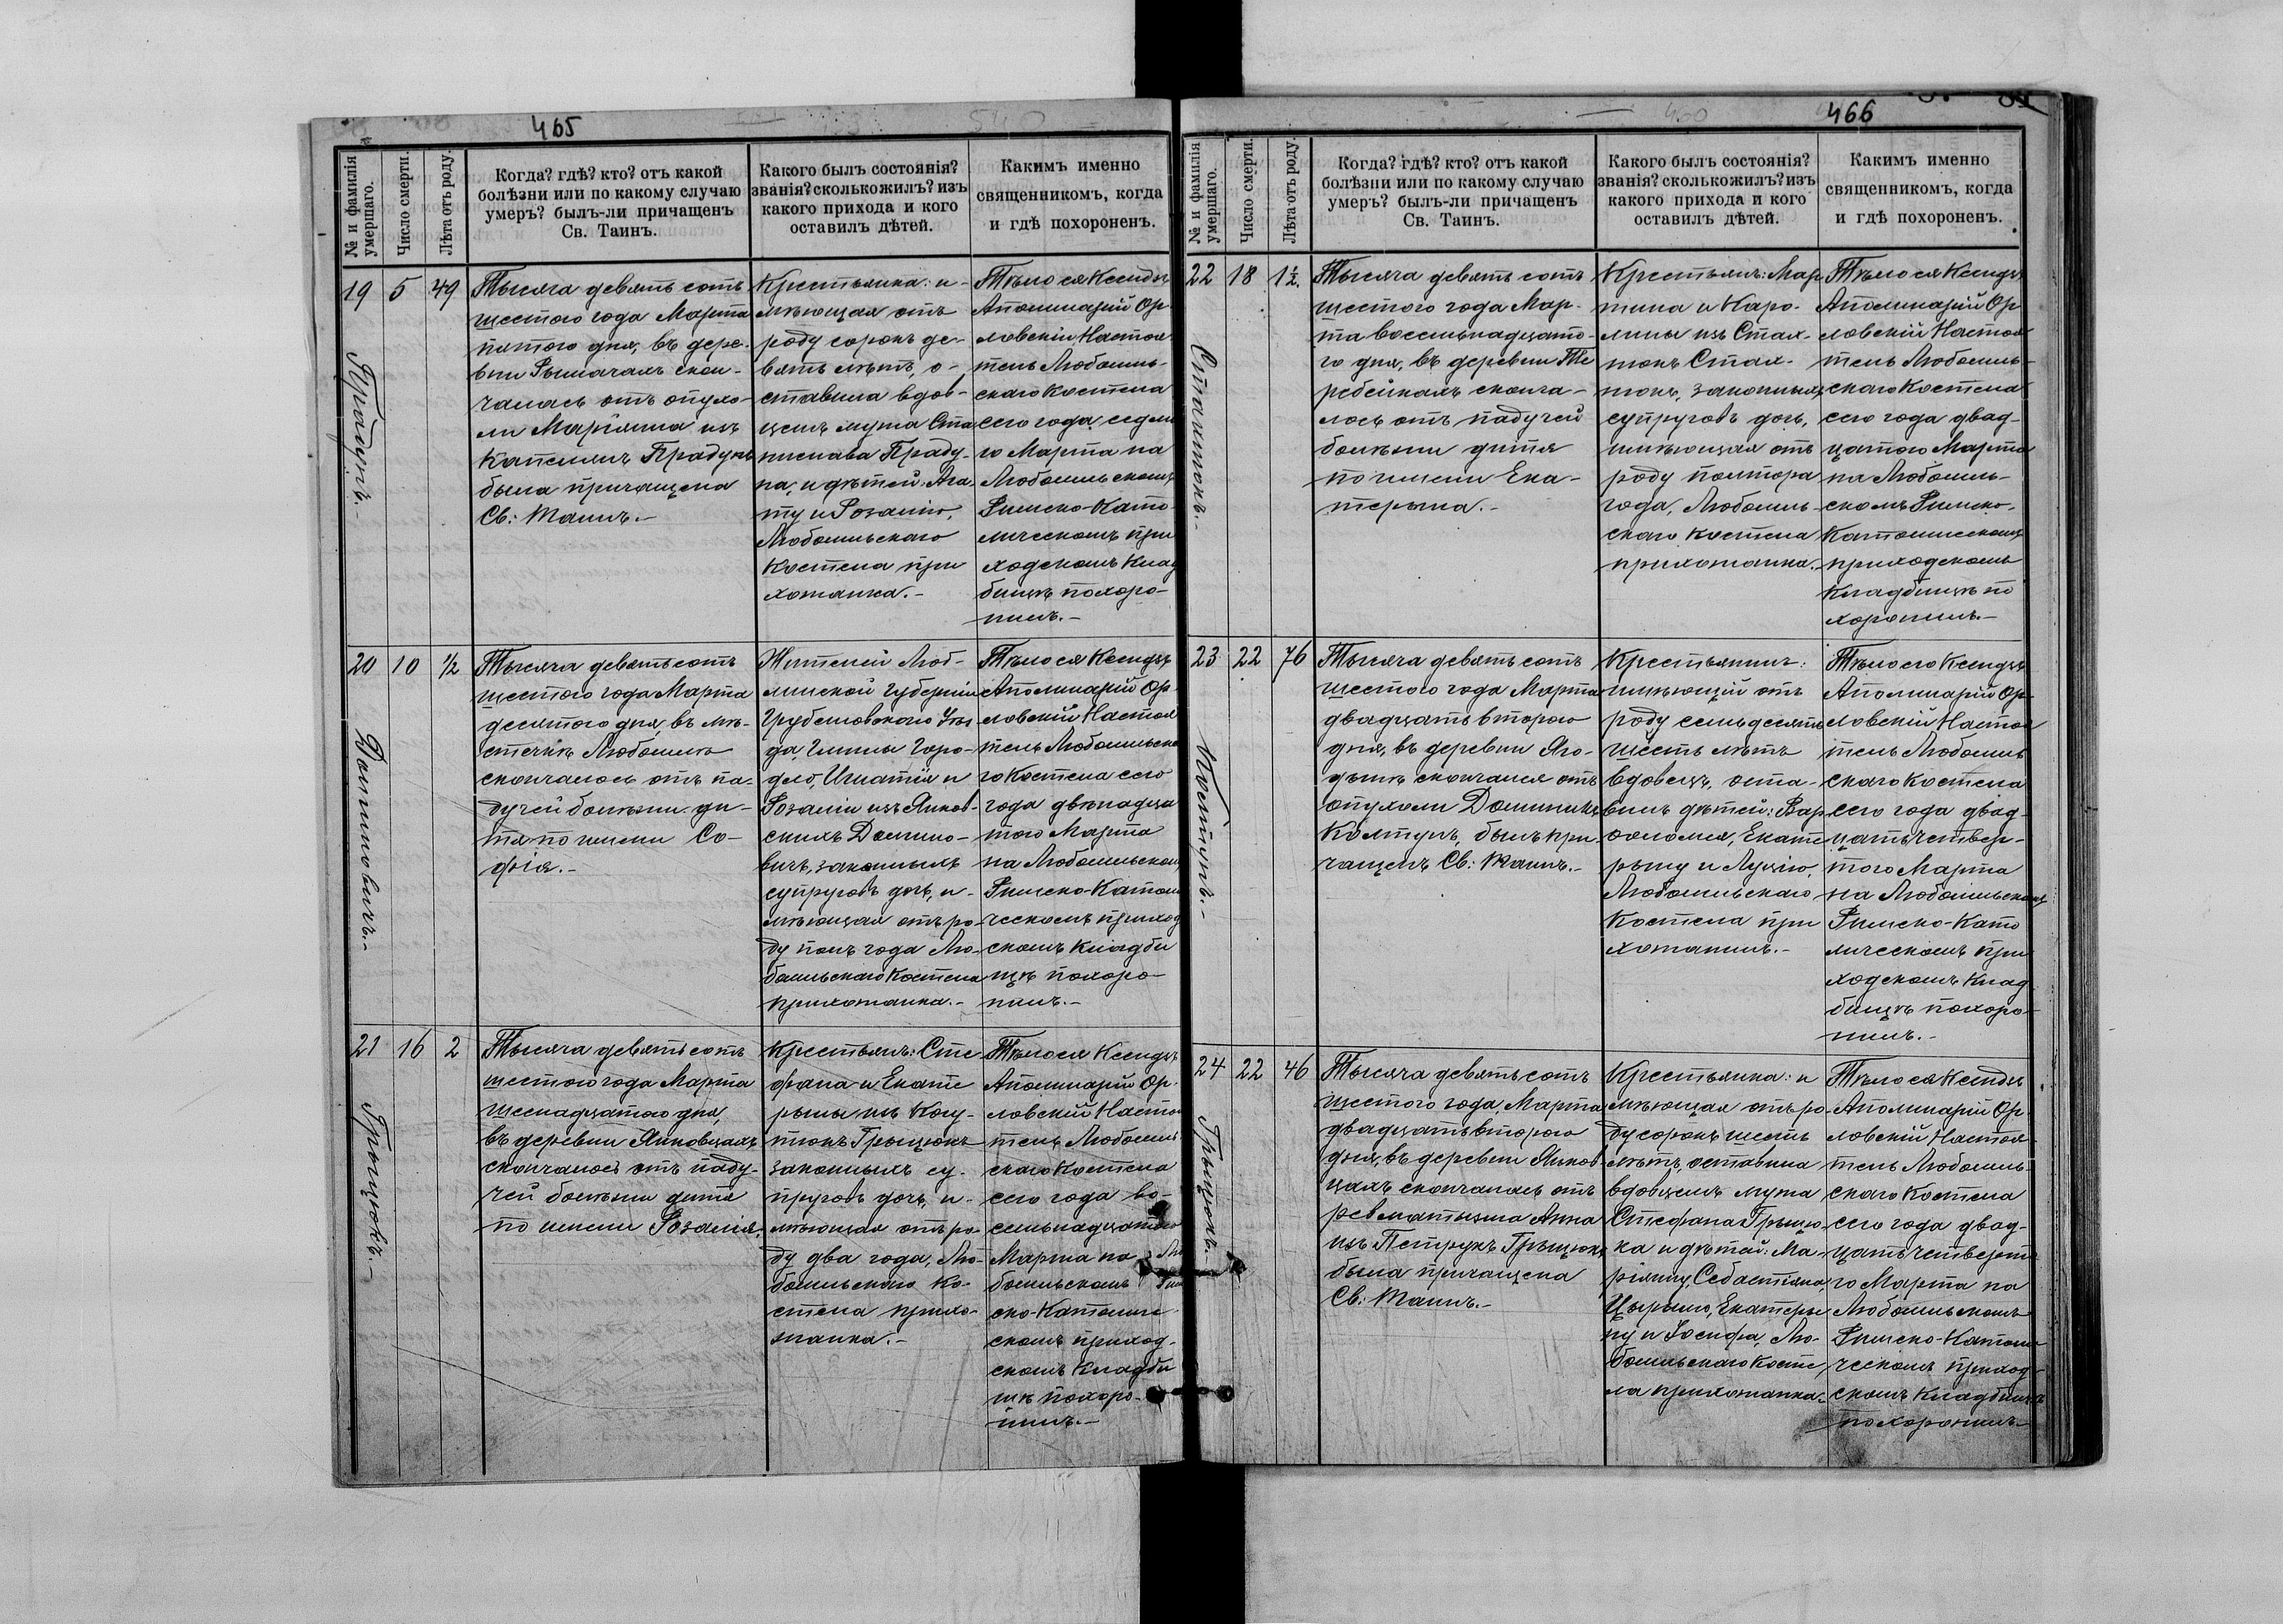 465
№ и фамилія умершаго.
Число смерти.
Лѣта отъ роду.
Когда? гдѣ? кто? отъ какой
болѣзни или по какому случаю
умеръ? былъ-ли причащенъ
Св. Таинъ.
Какого былъ состоянія?
званія? сколько жилъ? изъ
какого прихода и кого
оставилъ дѣтей.
Какимъ именно
священникомъ, когда
и гдѣ похороненъ.
19
5
49
Тысяча девятьсотъ
шестого года Марта
пятого дня, въ дере-
вни Рымачахъ скон-
чалась отъ опухо-
ли Маріянна изъ
Прадунъ
была причащена
Св: Таинъ.-
Крестьянка: и-
мѣющая отъ
роду сорокъ де-
вять лѣтъ, о-
ставила вдов-
цемъ мужа Ста
нислава Праду-
на, и дѣтей: Ага-
ту и Розалію,
Любомльскаго
Костела при
хожанка.-
Тѣло ея Ксендзъ
Аполинарій Ор-
ловскій Настоя
тель Любомль-
скаго Костела
сего года седьмо
го Марта на
Любомльскомъ
Римско-Като
лическомъ при
ходскомъ Клад
бищѣ похоро-
нилъ.-
20
10
1/2
Доминовичъ.-
Тысяча девятьсотъ
шестого года Марта
десятого дня, въ мѣ-
стечкѣ Любомлѣ
скончалось отъ па-
дучей болѣзни ди-
тя по имени Со-
фія.-
Жителей Люб-
линской Губерніи
Грубешовскаго Уѣз
да, Гмины Горо-
дло, Игнатія и
Розаліи изъ Янков-
скихъ Домино-
вичъ, законныхъ
супруговъ дочь, и-
мѣющая отъ ро-
ду полъ года Лю-
бомльскаго Костела
прихожанка.-
Тѣло ея Ксендзъ
Аполинарій Ор-
ловскій Настоя
тель Любомльска
го Костела сего
года двѣнадца
того Марта
на Любомльском
Римско-Катол
ческомъ приход
скомъ кладби
щѣ похоро-
нилъ.-
21
16
2
Грыцюкъ.-
Тысяча девятьсотъ
шестого года Марта
шеснадцатого дня,
въ деревни Янковцахъ
скончалось отъ паду-
чей болѣзни дитя
по имени Розалія.
Крестьянъ: Сте
фана и Екате
рыны изъ
Грыцюкъ
законныхъ су-
пруговъ дочь, и-
мѣющая отъ ро-
ду два года, Лю-
бомльскаго Ко-
стела прихо-
жанка.-
Тѣло ея Ксендзъ
Аполинарій Ор-
ловскій Настоя
тель Любомль
скаго Костела
сего года во-
семьнадцатого
Марта на Лю
бомльскомъ Рим
ско-Католиче
скомъ приход-
скомъ Кладби
щѣ похоро-
нилъ.-
466
№ и фамилія умершаго.
Число смерти.
Лѣта отъ роду.
Когда? гдѣ? кто? отъ какой
болѣзни или по какому случаю
умеръ? былъ-ли причащенъ
Св. Таинъ.
Какого былъ состоянія?
званія? сколько жилъ? изъ
какого прихода и кого
оставилъ дѣтей.
Какимъ именно
священникомъ, когда
и гдѣ похороненъ.
22
18
1½.
Тысяча девятьсотъ
шестого года Мар-
та восемьнадцато-
го дня, въ деревни Те
ребейкахъ сконча-
лось отъ падучей
болѣзни дитя
по имени Ека-
терына.-
Крестьянъ: Мар
тина и Каро-
лины изъ
законныхъ
супруговъ дочь,
имѣющая отъ
роду полтора
года, Любомль-
скаго Костела
прихожанка.-
Тѣло ея Ксендзъ
Аполинарій Ор
ловскій Настоя
тель Любомль-
скаго Костела
сего года двад-
цатого Марта
на Любомль-
скомъ Римско-
Католическомъ
приходскомъ
Кладбищѣ по
хоронилъ.-
23
22
76
Колтунъ.-
Тысяча девятьсотъ
шестого года Марта
двадцать второго
дня, въ деревни Яго-
дынѣ скончался отъ
опухоли Доминикъ
Колтунъ, былъ при-
чащенъ Св: Таинъ.-
Крестьянинъ:
имѣющій отъ
роду семьдесятъ
шесть лѣтъ
вдовецъ, оста-
вилъ дѣтей: Вар
ѳоломея, Екате
рыну и Луцію,
Любомльскаго
Костела при
хожанинъ.-
Тѣло его Ксендзъ
Аполинарій Ор-
ловскій Настоя
тель Любомль
скаго Костела
сего года двад-
цать четвер-
того Марта
на Любомльскомъ
Римско-Като
лическомъ при
ходскомъ Клад
бищѣ похоро-
нилъ.-
24
22
46
Грыцюкъ.-
Тысяча девятьсотъ
шестого года Марта
двадцать второго
дня, въ деревни Янков
цахъ скончалась отъ
ревматызма Анна
изъ Петрукъ Грыцюкъ
была причащена
Св: Таинъ.-
Крестьянка: и
мѣющая отъ ро-
ду сорокъ шесть
лѣтъ, оставила
вдовцемъ мужа
Стефана Грыцю-
ка и дѣтей: Ма-
ріянну, Себастіяна,
Екатеры
ну и Іосифа, Лю-
бомльскаго Косте
ла прихожанка.-
Тѣло ея Ксендзъ
Аполинарій Ор
ловскій Настоя-
тель Любомль-
скаго Костела
сего года двад-
цать четверта
го Марта на
Любомльскомъ
Римско-Католи
ческомъ приход-
скомъ Кладбищѣ
похоронилъ.-